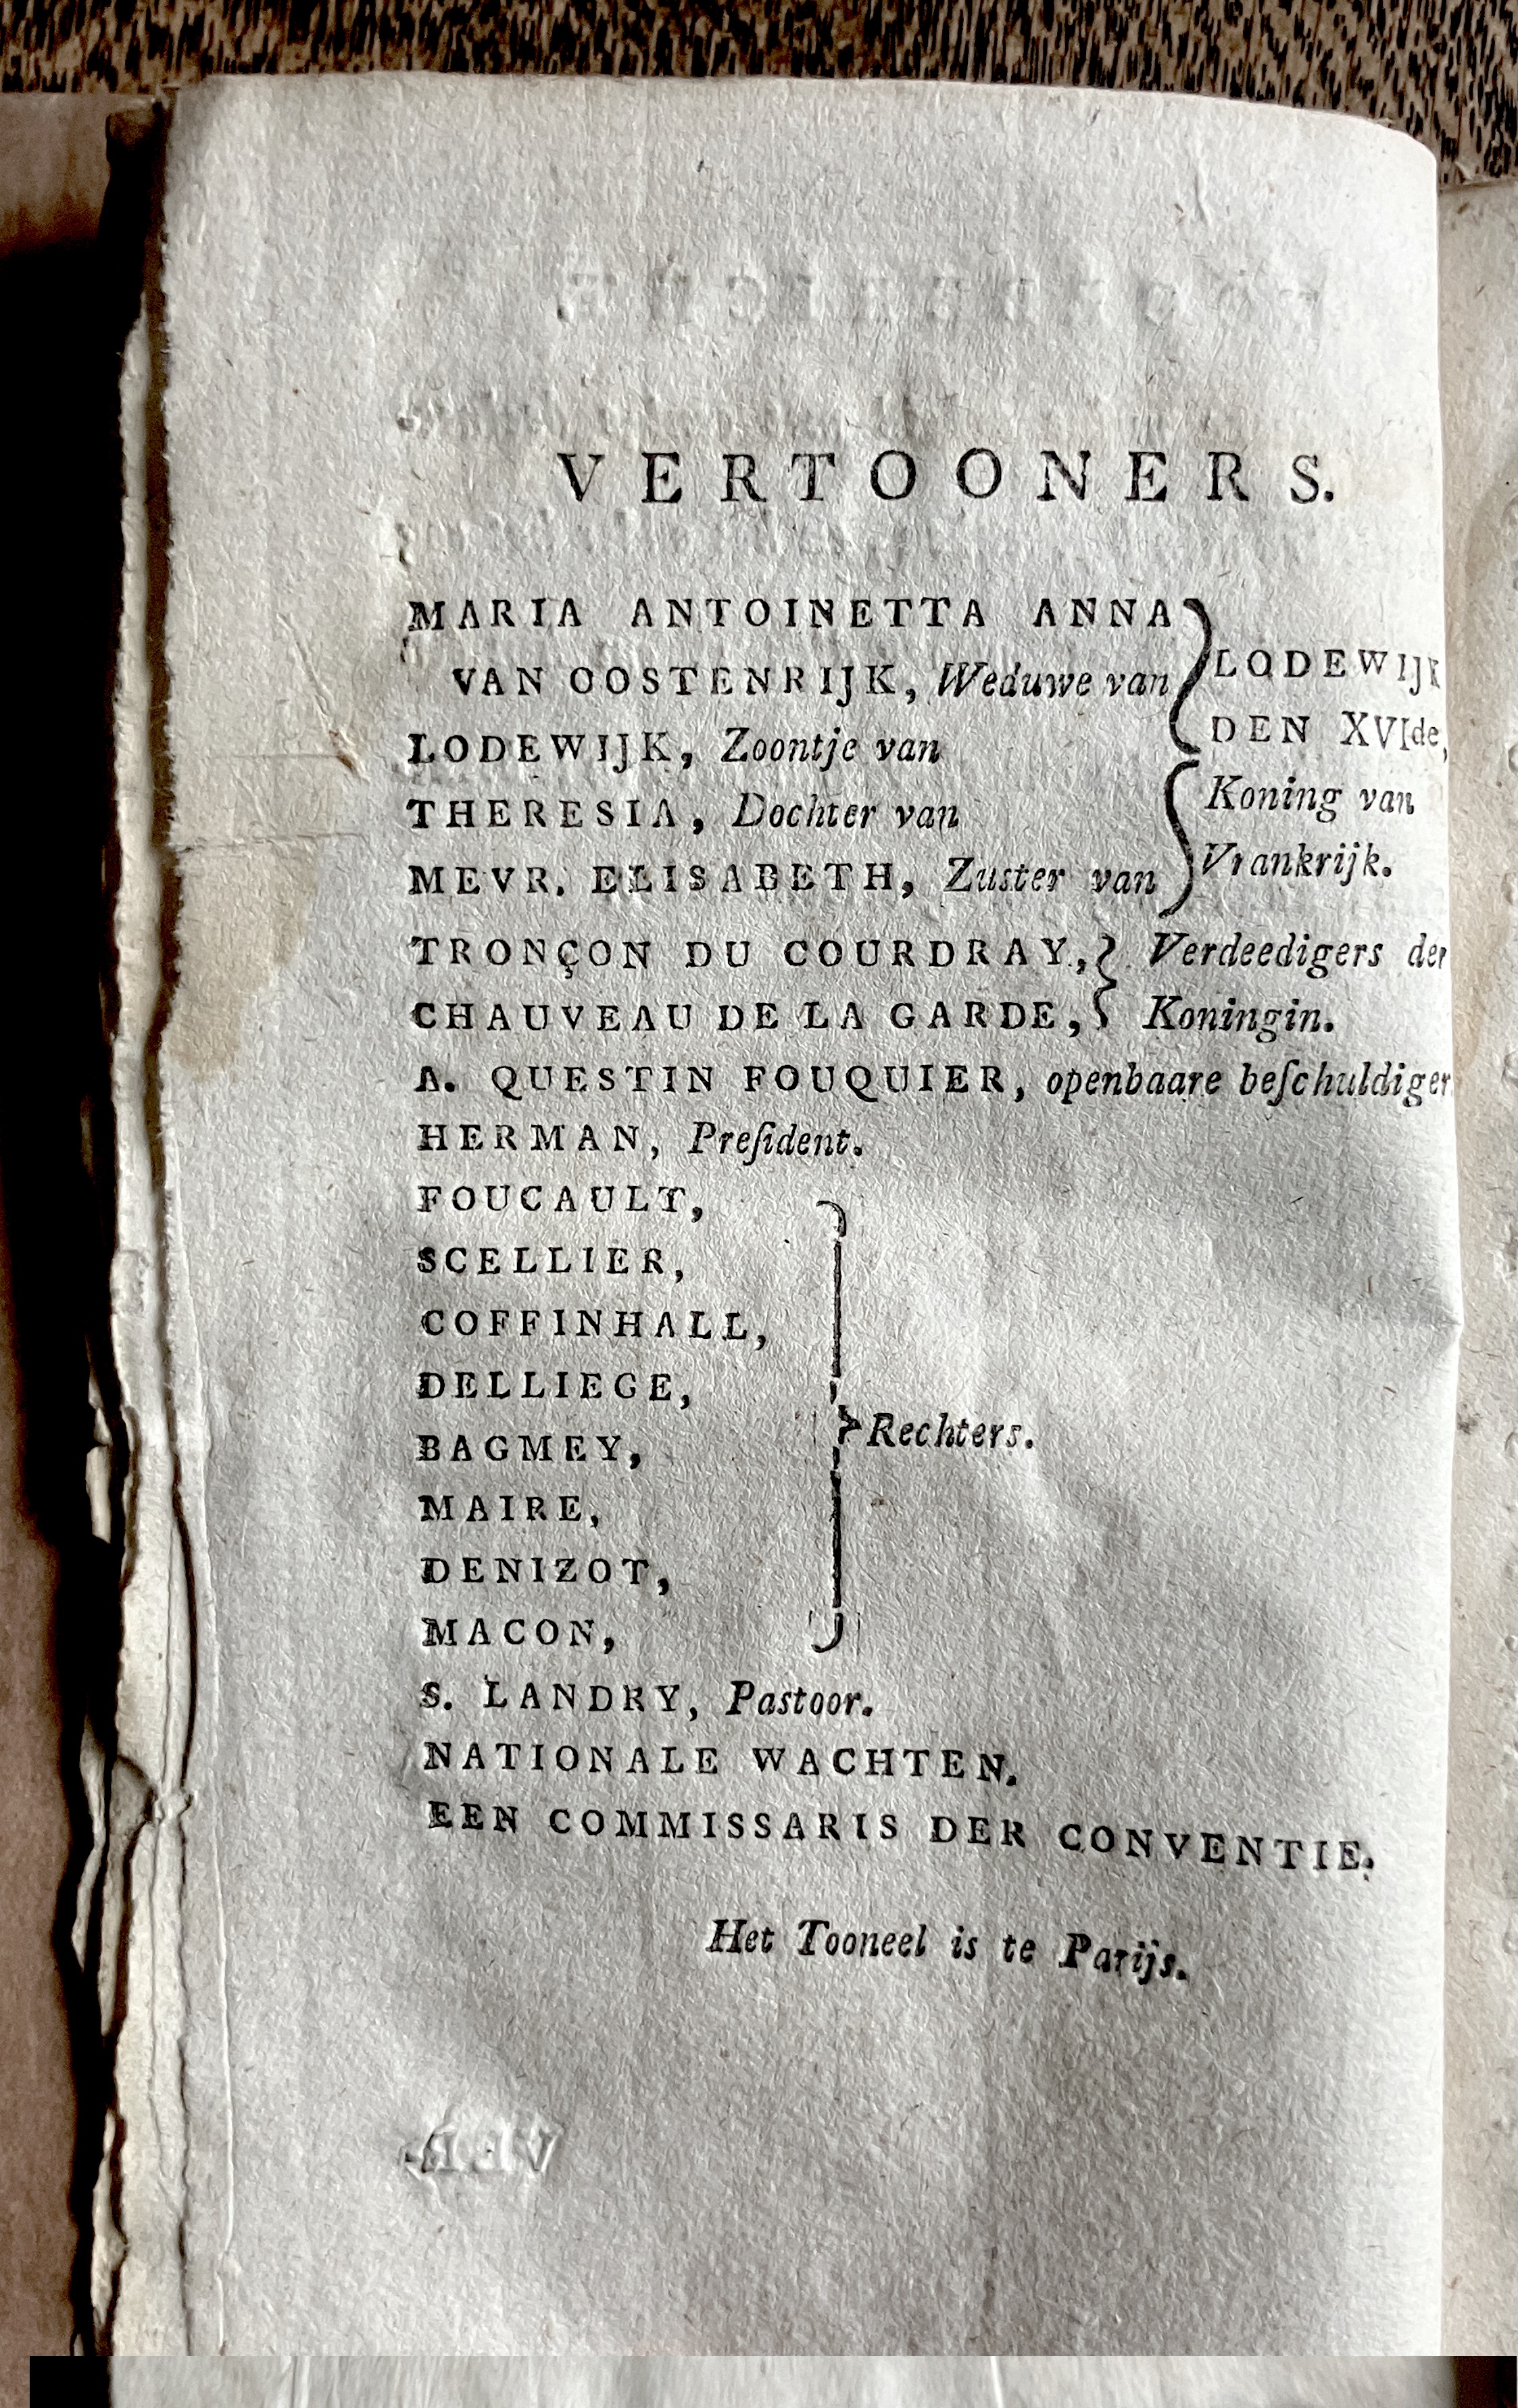 VERTOONERS.
MARIA ANTOINETTA ANNA
VAN OOSTENRIJK, Weduwe van
LODEWIJK, Zoontje van
THERESIA, Dochter van
MEVR. ELISABETH, Zuster van
LODEWIJK
DEN XVIde,
Koning van
Vrankrijk.
TRONÇON DU COURDRAY,
CHAUVEAU DE LA GARDE,
Verdeedigers der
Koningin.
A. QUESTIN FOUQUIER, openbaare beſchuldiger
HERMAN, Preſident.
FOUCAULT,
SCELLIER,
COFFINHALL,
DELLIEGE,
BAGMEY,
MAIRE,
DENIZOT,
MACON,
Rechters.
S. LANDRY, Pastoor.
NATIONALE WACHTEN.
EEN COMMISSARIS DER CONVENTIE.
Het Tooneel is te Parijs.